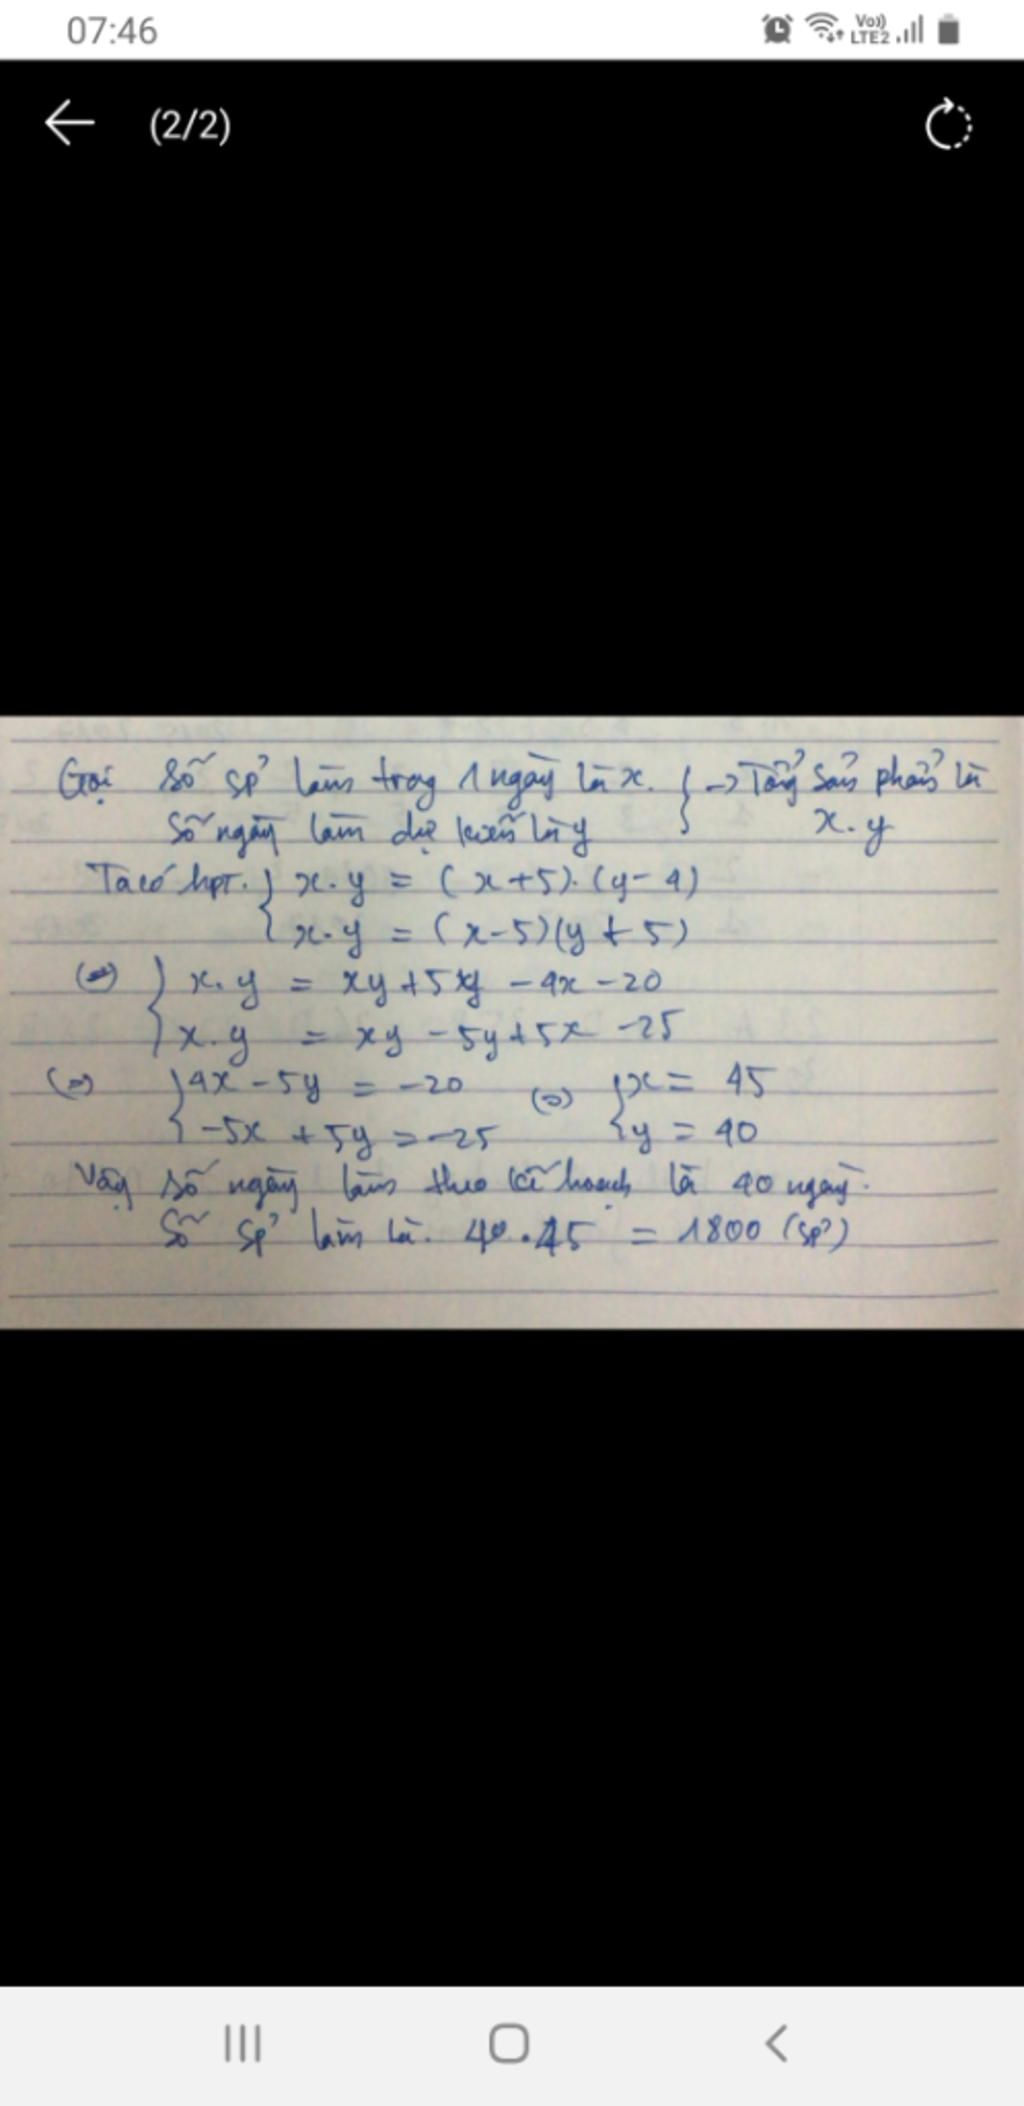 07:46
Vo)) LTE2
(2/2)
Gọi số sp' làm trong 1 ngày là x. } -> Tổng sản phẩm là
số ngày làm dự kiến là y x.y
Ta có hpt. { x.y = (x+5).(y-4)
x.y = (x-5)(y+5)
(=) { x.y = xy+5y -4x -20
x.y = xy -5y+5x -25
(=) { 4x -5y = -20 (=) { x = 45
-5x +5y = -25 y = 40
Vậy số ngày làm theo kế hoạch là 40 ngày.
Số sp' làm là. 40.45 = 1800 (sp')